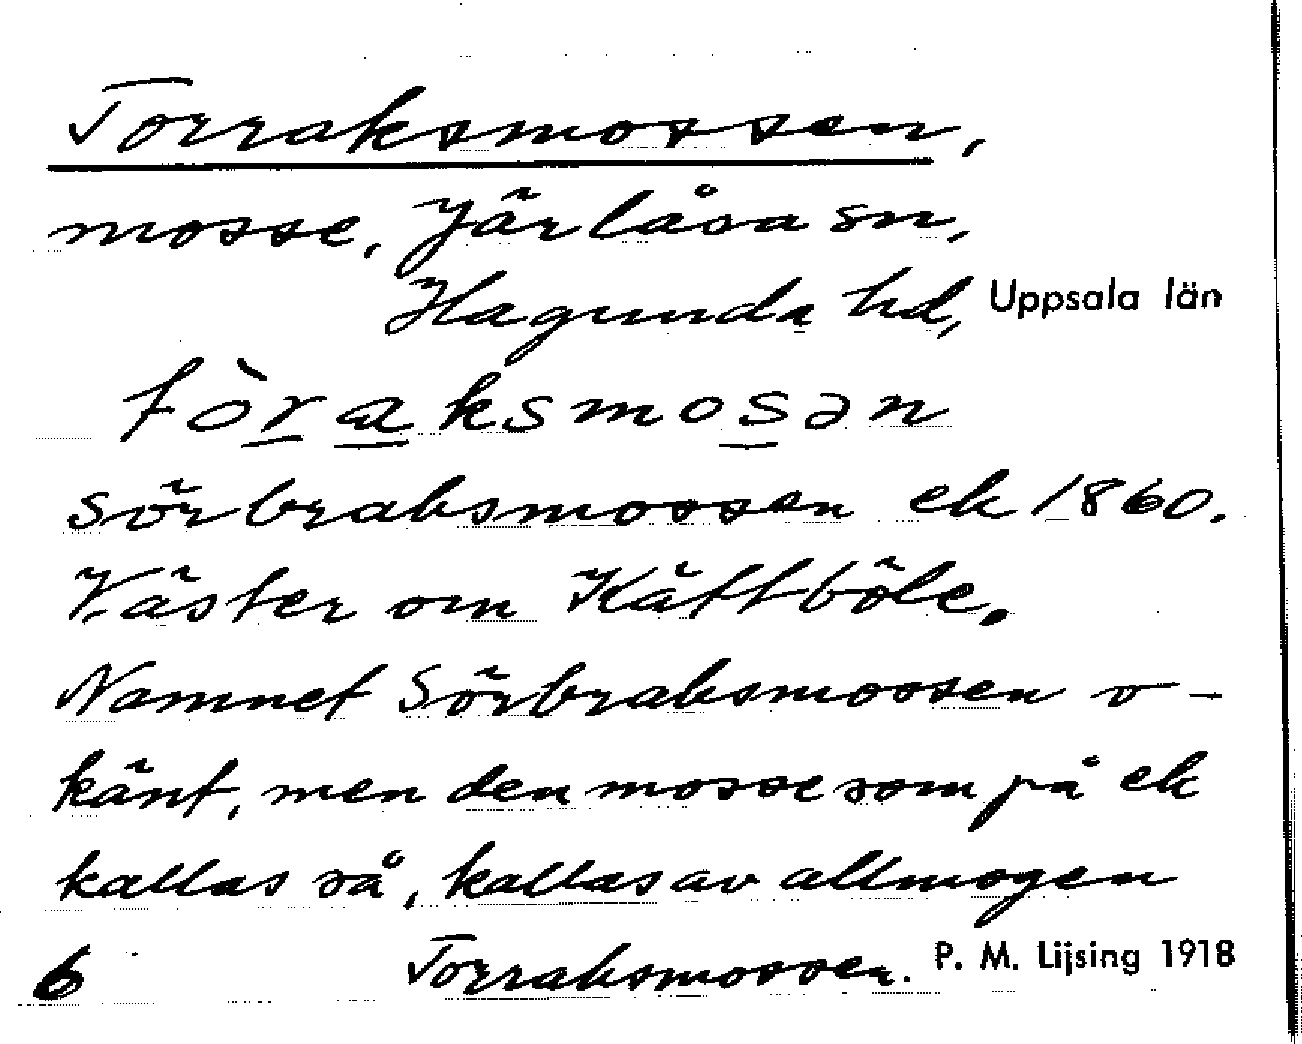 Torraksmossen,
mosse, Järlåsa sn,
Hagunda hd, Uppsala län
tòraksmosən
Sörbraksmossen ek 1860.
Väster om Kättböle.
Namnet Sörbraksmossen o-
känt, men den mosse som på ek
kallas så, kallas av allmogen
6 Torraksmossen. P. M. Lijsing 1918